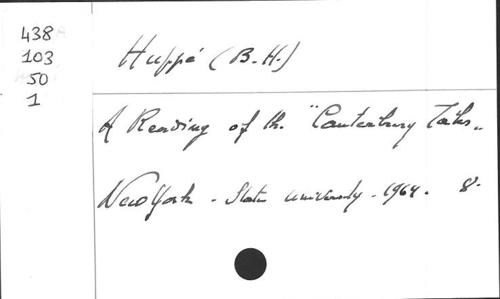 438
103
50
1
Huppé (B.H.)
A Reading of th. "Canterbury Tales"
New York - State University - 1964. 8°